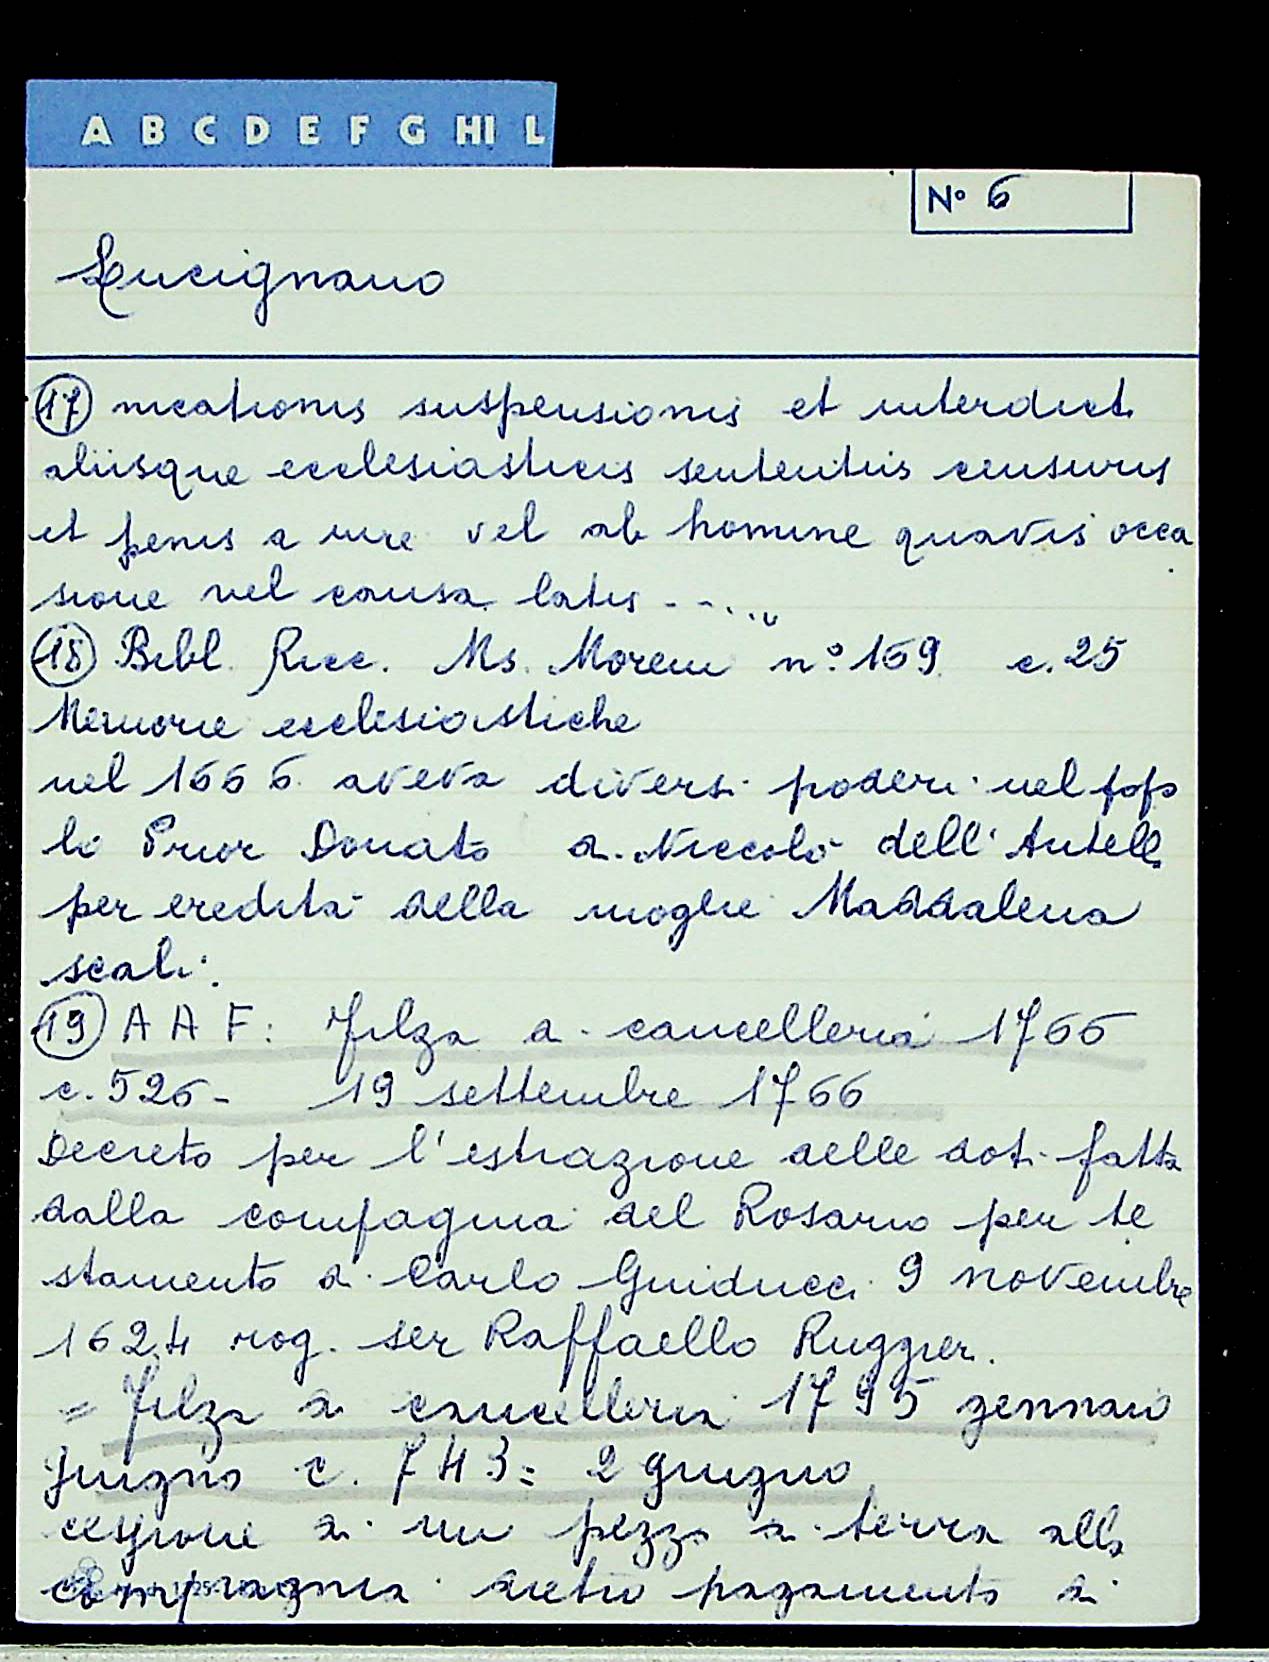 A B C D E F G HI L
N° 6
Lucignano
(17) nicationis suspensionis et interdicti
aliisque ecclesiasticis sententiis censuris
et penis a iure vel ab homine quavis occa
sione vel causa latis - - . . . .
(18) Bibl. Ricc. Ms. Moreni n° 169. c. 25
Memorie ecclesiastiche
nel 1666 aveva diversi poderi nel popo
lo Prior Donato di Niccolò dell'Antella
per eredità della moglie Maddalena
scali.
(19) A A F: Filza di cancelleria 1766
c. 526 - 19 settembre 1766
Decreto per l'estrazione delle doti fatta
dalla compagnia del Rosario per te
stamento di Carlo Guiducci 9 novembre
1624 rog. ser Raffaello Ruggier.
= Filza di cancelleria 1795 gennaio
giugno c. 743 = 2 giugno
cessione di un pezzo di terra alla
compagnia dietro pagamento di